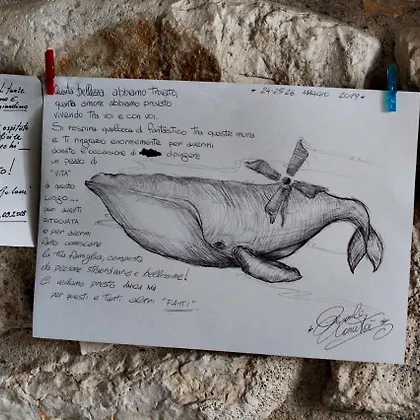 Quanta bellezza abbiamo trovato,
quanta amore abbiamo provato
vivendo tra voi e con voi.
Si respira qualcosa di fantastico tra queste mura
e ti ringrazio enormemente per avermi
donato l'occasione di dipingere
un pezzo di
"VITA"
di questo
LUOGO...
per averti
RITROVATA
e per avermi
fatto conoscere
la tua famiglia, composta
da persone straordinarie e bellissime!
Ci vediamo presto ANCH
per questi e tanti altri "FATTI"
24-25-26 MAGGIO 2019